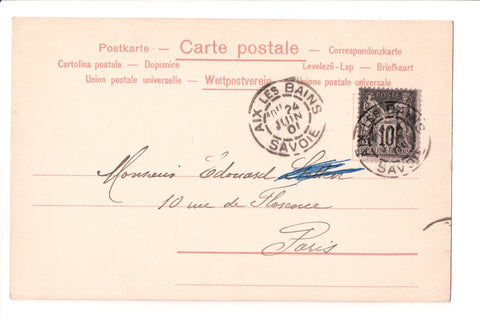 Postkarte - Carte postale - Correspondenzkarte
Cartolina postale - Dopisnice Levelező-Lap - Briefkaart
Union postale universelle - Weltpostverein - Unione postale universale
AIX LES BAINS
24
JUIN
01
SAVOIE
10
Monsieur Édouard
10 rue de Florence
Paris